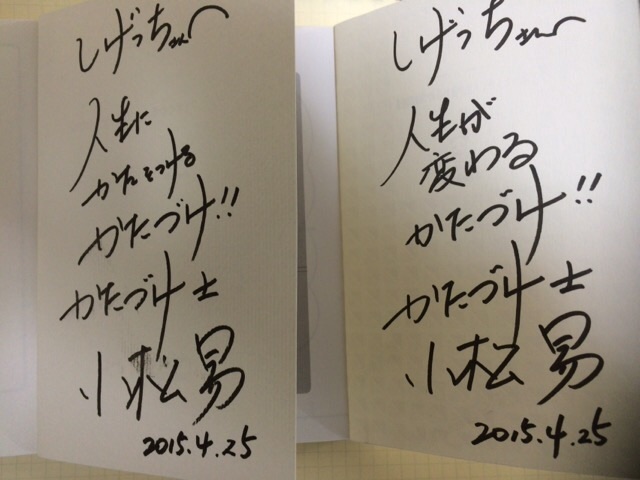 しげっちゃんへ
人生に
かたをつける
かたづけ!!
かたづけ士
小松易
2015.4.25
しげっちゃんへ
人生が
変わる
かたづけ!!
かたづけ士
小松易
2015.4.25